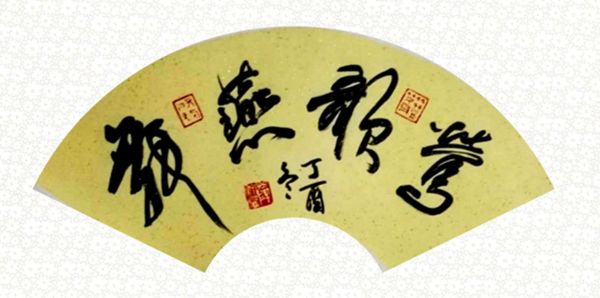 莺歌燕舞
丁酉
冬